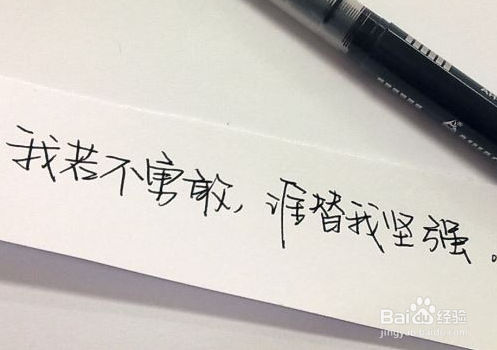 我若不勇敢，谁替我坚强。
Baidu经验
jingyan.baidu.com